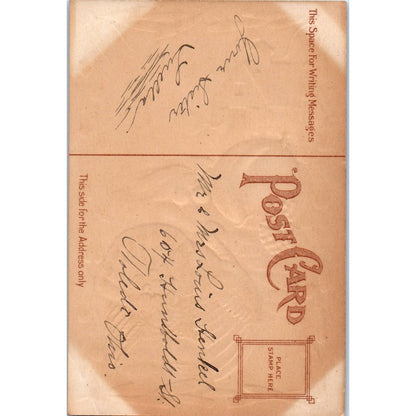 This Space For Writing Messages
Love
Sister
POST CARD
PLACE
STAMP HERE
This side for the Address only
Mr & Mrs Louis Henkel
604 Humboldt St.
Toledo Ohio.